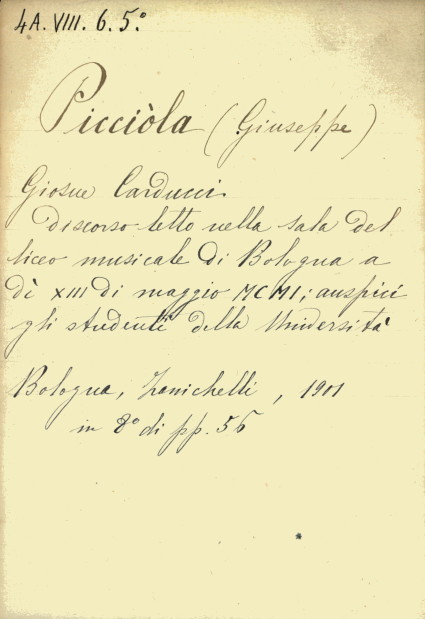 4A. VIII. 6. 5.°
Picciòla (Giuseppe)
Giosue Carducci.
Discorso letto nella sala del
liceo musicale di Bologna a
dì XIII di maggio MCMI; auspici
gli studenti della Università
Bologna, Zanichelli, 1901
in 8° di pp. 56
*